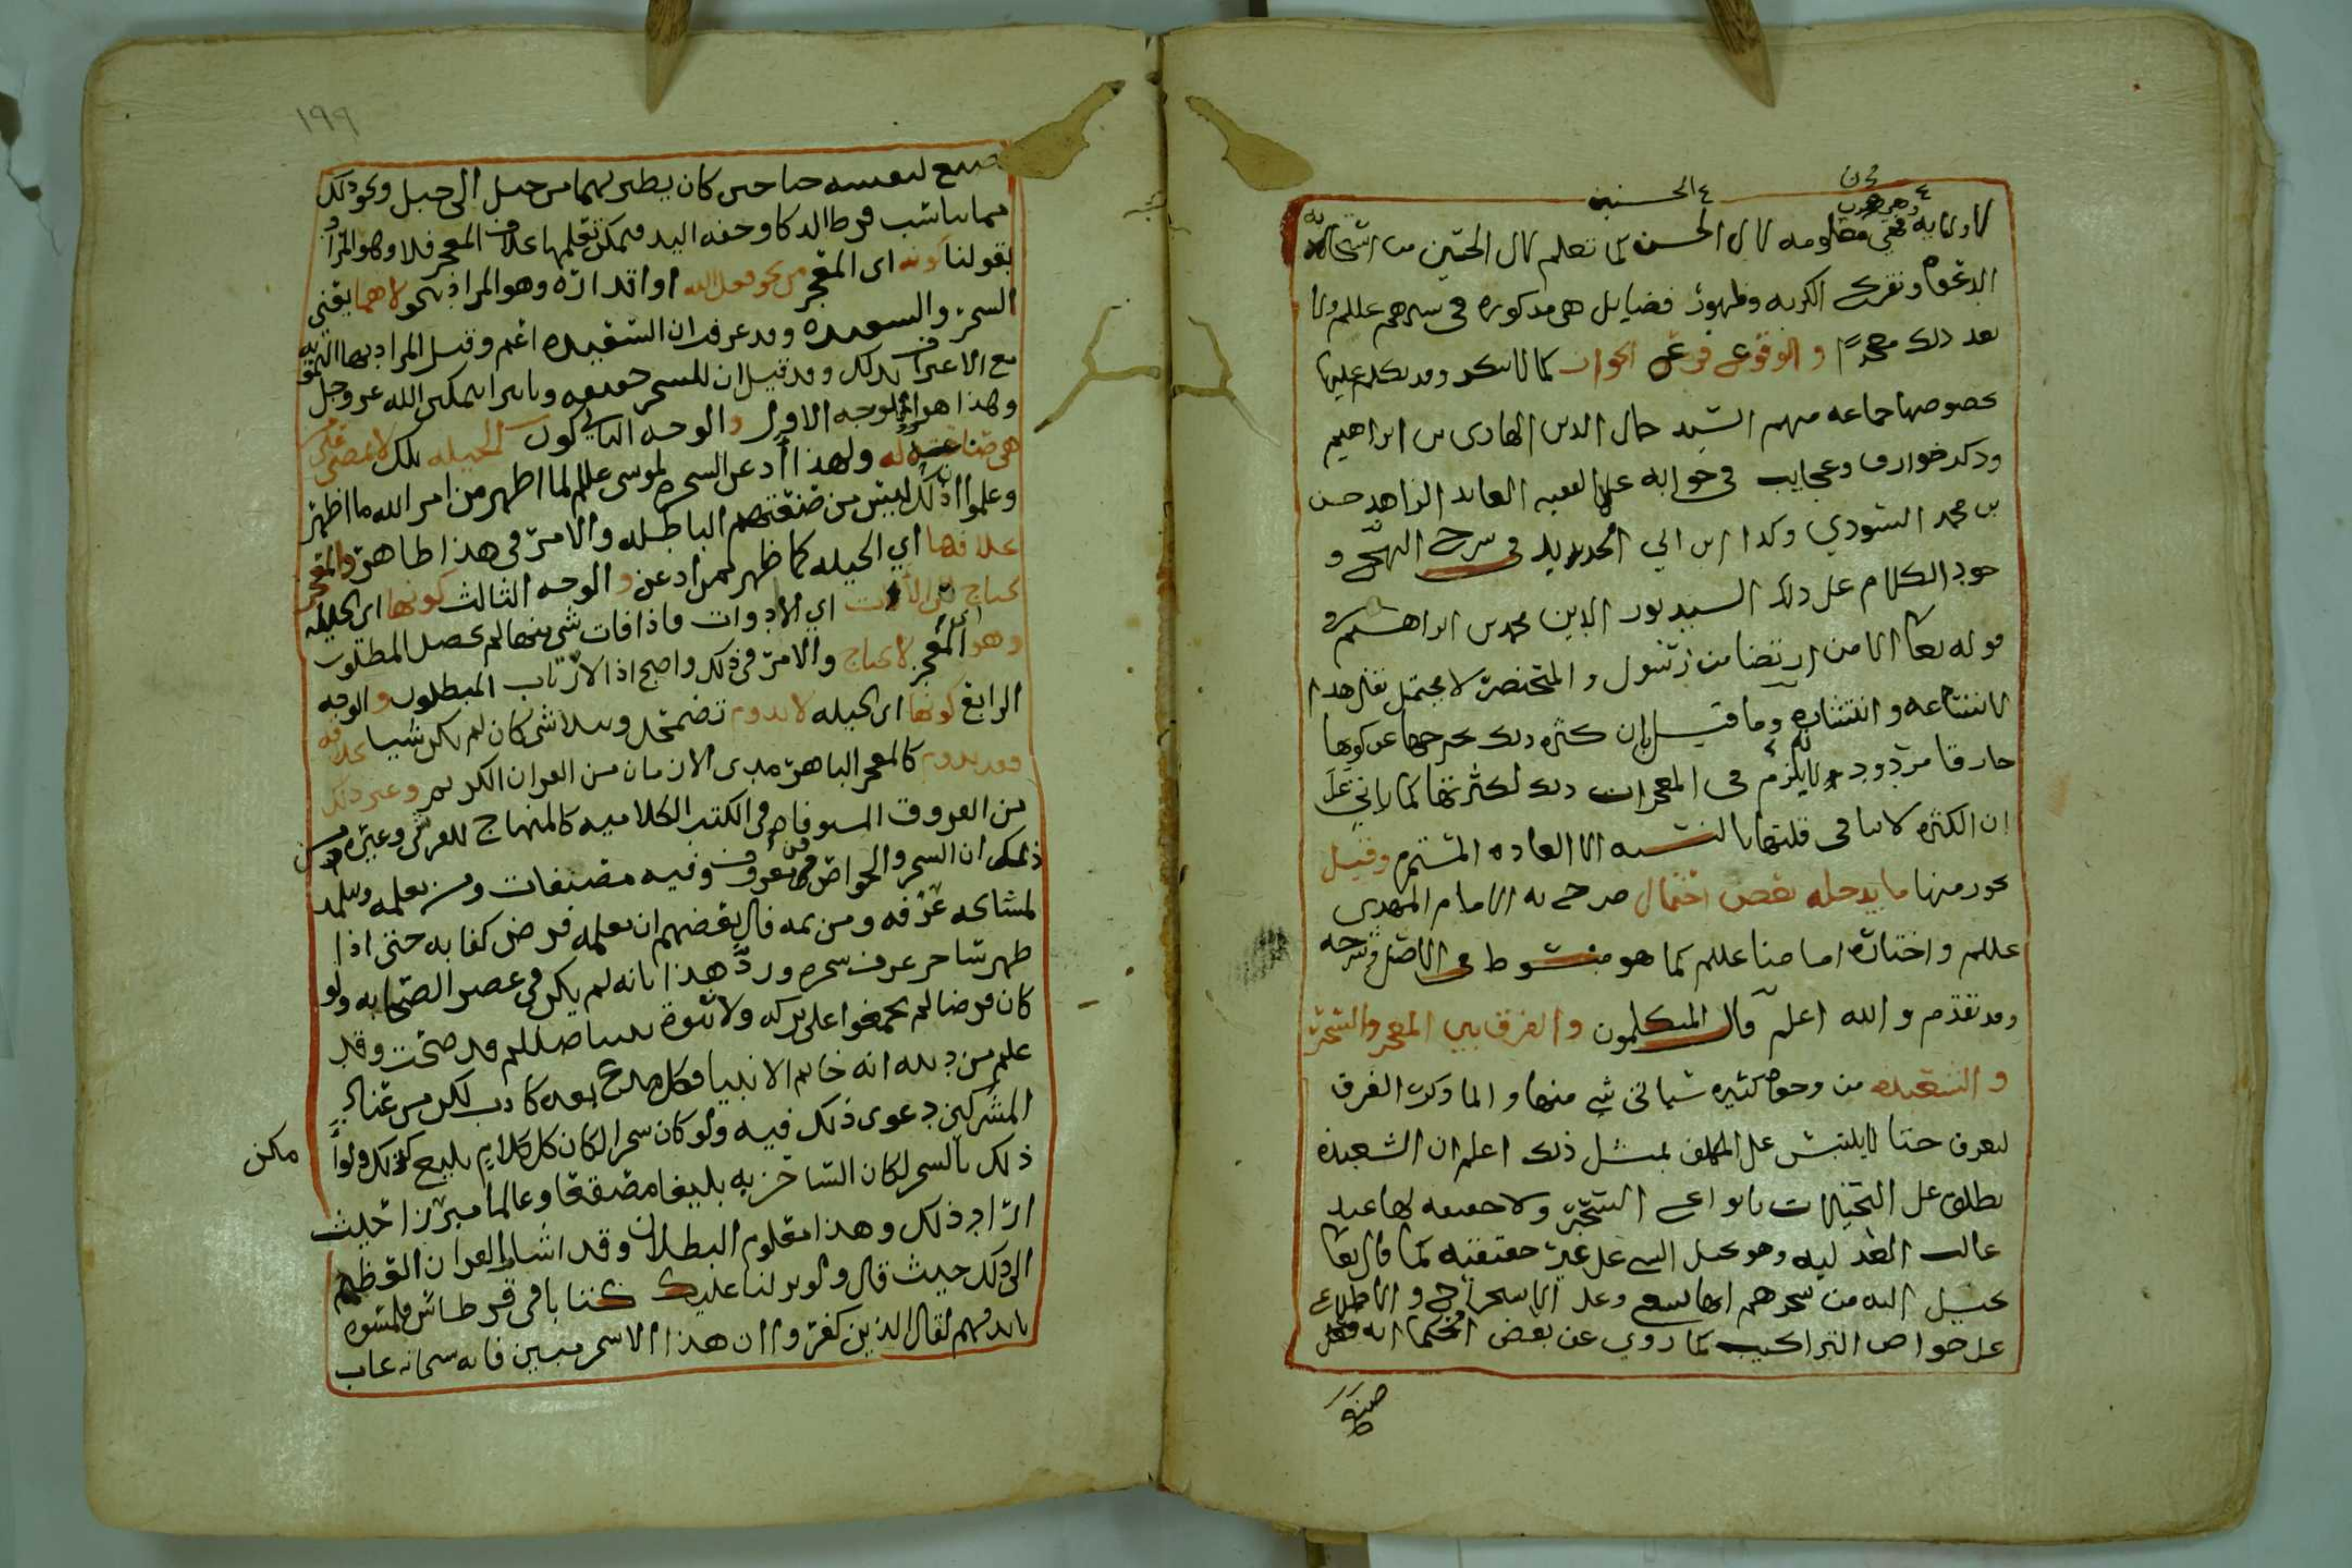 كالولايه فهي معلومه كال الحسن كما تعلم كال الحسين من استجابة
الدعوه وتفريج الكربه وظهور فضايل هي مذكوره في سيرهم عللم ولا
بعد ذلك معجزا والوقوع فرع الجواز كما لا ينكر وقد تكلم عليها
بخصوصها جماعه منهم السيد جمال الدين الهادي بن ابراهيم
وذكر خوارق وعجايب في جوابه على الفقيه العابد الزاهد حسن
بن محمد الشودي وكذا ابن ابي الحديد في شرح النهج و
جود الكلام على ذلك السيد نور الدين محمد بن ابراهيم
قوله تعالى الا من ارتضا من رسول والمختصر لا يحتمل نقل هذا
لاتساعه وانتشاره وما قيل بان كثره ذلك يخرجها عن كونها
خارقا مردود لا يلزم في المعجزات ذلك لكثرتها كما ياتي على
ان الكثره لا تنافي قلتها بالنسبه الى العاده المستمره وقيل
يجوز منها ما يدخله بعض احتمال صرح به الامام المهدي
عللم واختاره امامنا عللم كما هو مبسوط في الاصل وشرحه
وقد تقدم والله اعلم قال المتكلمون والفرق بين المعجز والسحر
والشعبذه من وجوه كثيره سياتي شي منها وانما ذكرت الفرق
ليعرف حتا لا يلتبس على المكلف بمثل ذلك اعلم ان الشعبذه
تطلق على التخيلات بانواع السحر ولا حقيقه لها عند
غالب العدليه وهو تخيل الشي على غير حقيقته كما قال تعالى
يخيل اليه من سحرهم انها تسعى وعلى الاستخراج والاطلاع
على خواص التراكيب كما روي عن بعض الحكما انه
صنع
١٩٩
صنع لنفسه جناحين كان يطير بهما من جبل الى جبل ونحو ذلك
مما يناسب فرط الذكا وخفه اليد فيمكن تعلمها بخلاف المعجز فلا وهو المراد
بقولنا كونه اى المعجز من نحو فعل الله او اقداره وهو المراد بنحو لا هما يعني
السحر والشعبذه وقد عرفت ان الشعبذه اعم وقيل المراد بها التمويه
مع الاعتراف بذلك وقد قيل ان للسحر حقيقه وتاثيرا بتمكين الله عز وجل
وهذا هو الوجه الاول والوجه الثاني كون الحيله تلك لا
هي صناعته له ولهذا اذعن السحره لموسى عللم لما اظهر من امر الله ما اظهر
وعلموا ان ذلك ليس من صنعتهم الباطله والامر في هذا ظاهر والمعجز
بخلافها اي الحيله كما ظهر لمن اذعن والوجه الثالث كونها اى الحيله
تحتاج الى الالات اي الادوات فاذا فات شي منها لم يحصل المطلوب
وهو اى المعجز لا يحتاج والامر في ذلك واضح اذا لارتاب المبطلون والوجه
الرابع كونها اى الحيله لا تدوم تضمحل وتتلاشى كان لم تكن شيا بخلافه
فقد يدوم كالمعجز الباهر مدى الازمان من القران الكريم وغير ذلك
من الفروق المستوفاه في الكتب الكلاميه كالمنهاج للقرشي وغيره من
ذلك ان السحر والخواص فن معروف وفيه مصنفات ومن يعلمه وتتلمذ
لمشايخه عرفه ومن ثمه قال بعضهم ان تعلمه فرض كفايه حتى اذا
ظهر ساحر عرف سحره ورد هذا بانه لم يكن في عصر الصحابه ولو
كان فرضا لم يجمعوا على تركه ولا نبوة نبينا صللم قد صحت وقد
علم من دينه انه خاتم الانبيا فكل مدع بعده كاذب لكن من عناد
المشركين دعوى ذلك فيه ولو كان سحرا لكان كل كلام بليغ كذلك ولو
مكن
ذلك بالسحر لكان الساحر به بليغا مصقعا وعالما مبرزا حيث
اراد ذلك وهذا معلوم البطلان وقد اشار القران العظيم
الى ذلك حيث قال ولو نزلنا عليك كتابا في قرطاس فلمسوه
بايديهم لقال الذين كفروا ان هذا الا سحر مبين فانه سبحانه عاب